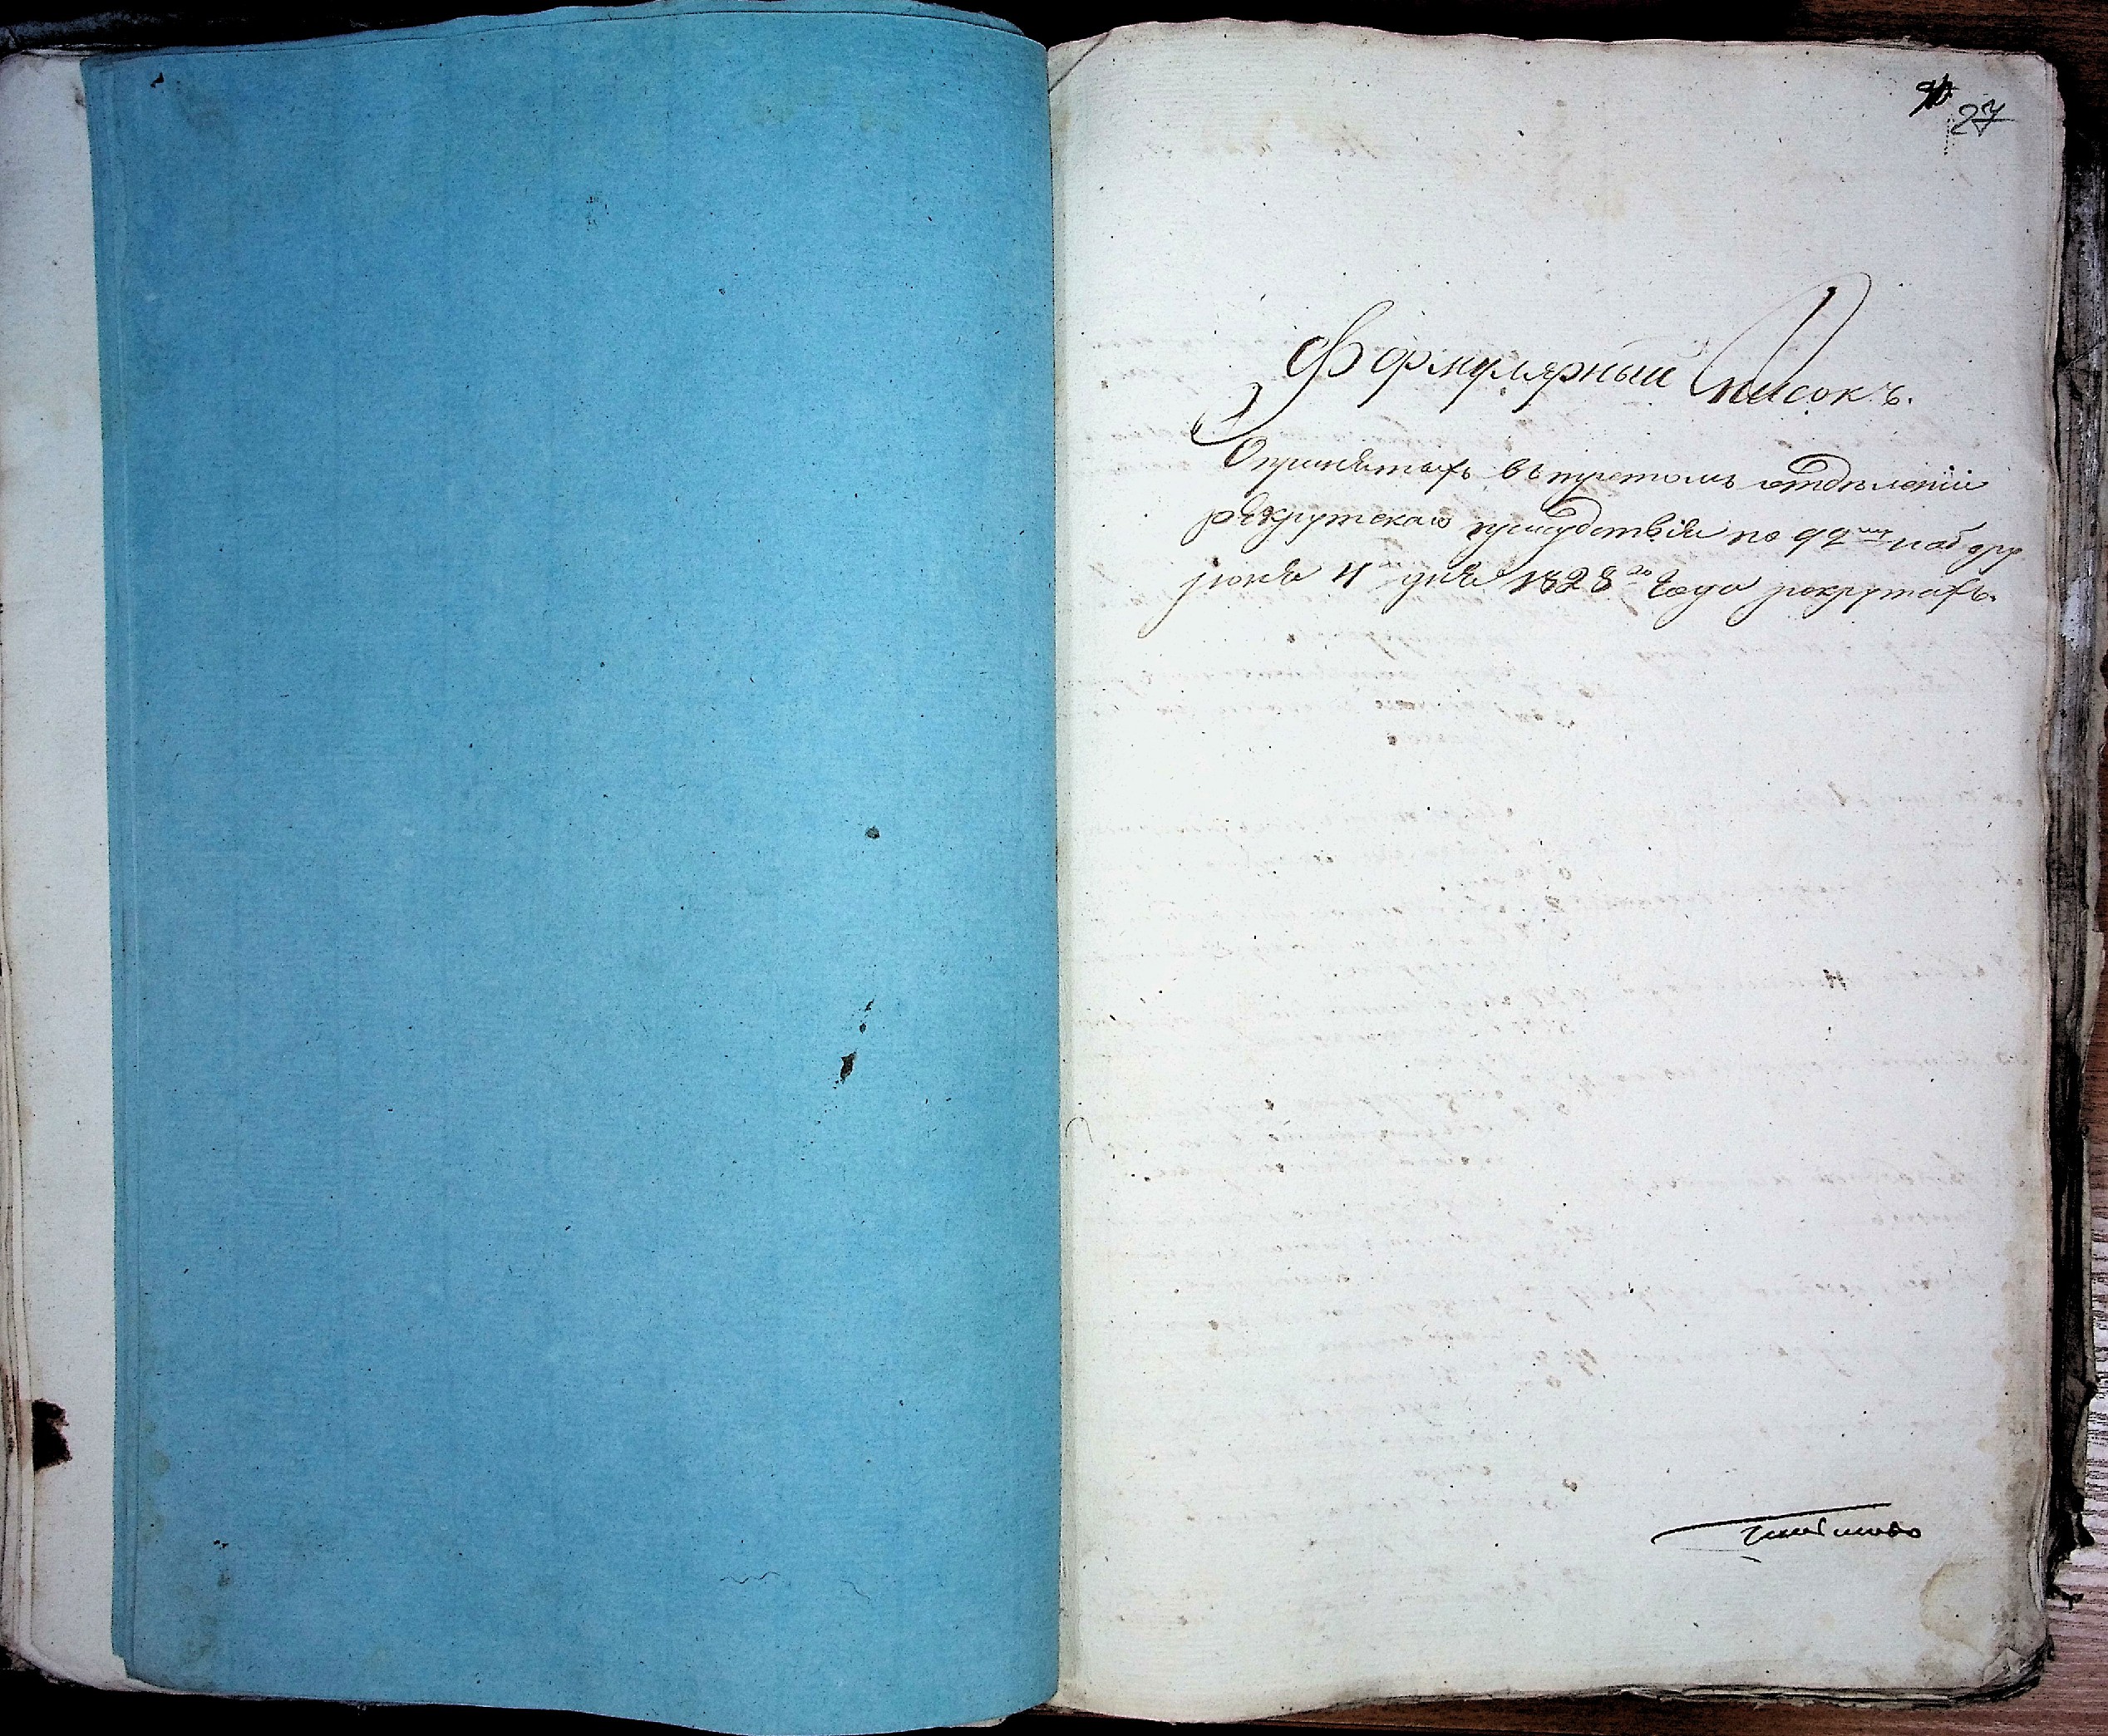 27
Формулярный Списокъ.
О принятыхъ въ третомъ отделеніи
рекрутскаго присудствія по 92му набору
июня 4 дня 1828го Года рекрутахъ.